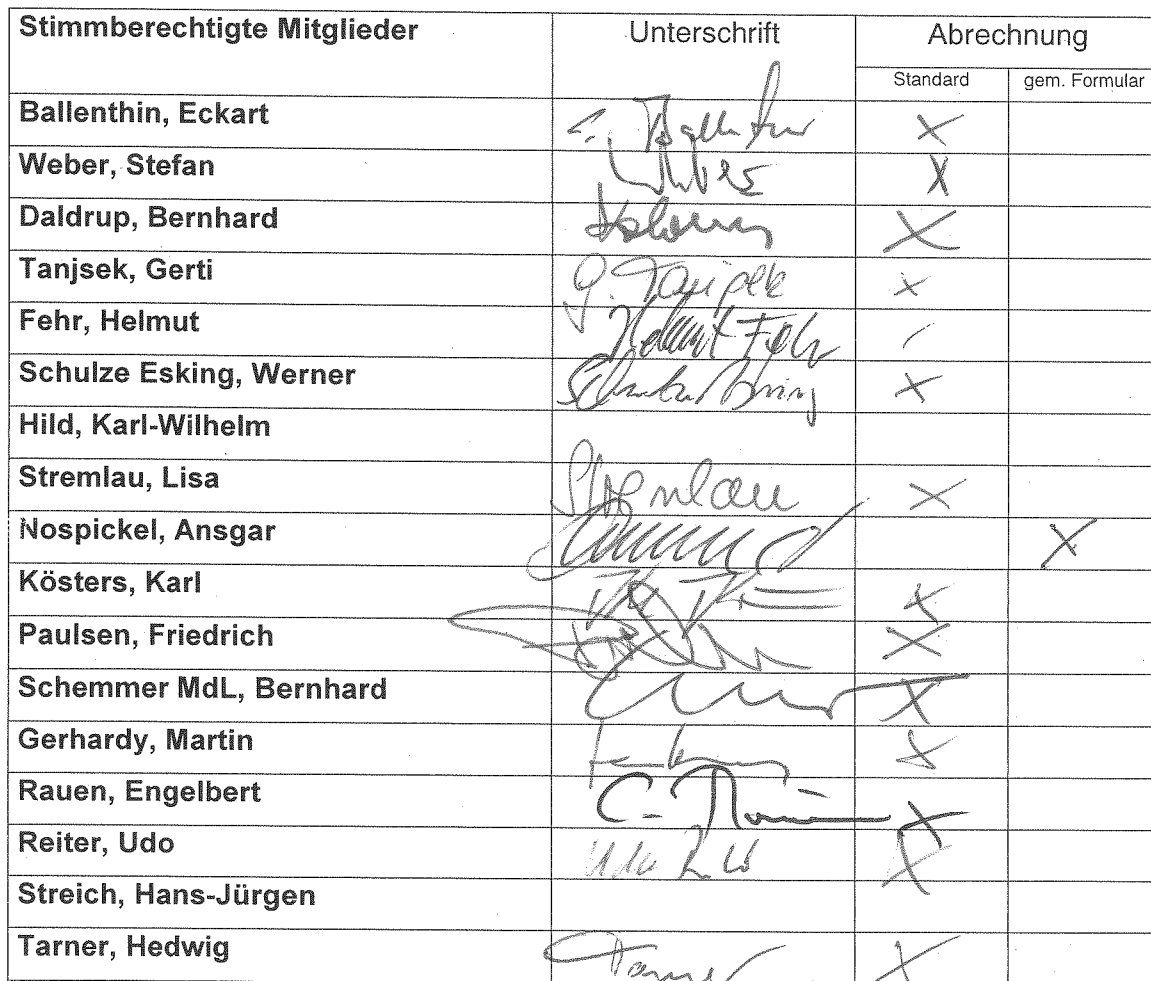 Stimmberechtigte Mitglieder Unterschrift Abrechnung
Standard gem. Formular
Ballenthin, Eckart X
Weber, Stefan X
Daldrup, Bernhard X
Tanjsek, Gerti G. Tanjsek X
Fehr, Helmut Helmut Fehr
Schulze Esking, Werner X
Hild, Karl-Wilhelm
Stremlau, Lisa Stremlau X
Nospickel, Ansgar X
Kösters, Karl X
Paulsen, Friedrich X
Schemmer MdL, Bernhard X
Gerhardy, Martin X
Rauen, Engelbert X
Reiter, Udo X
Streich, Hans-Jürgen
Tarner, Hedwig Tarner X